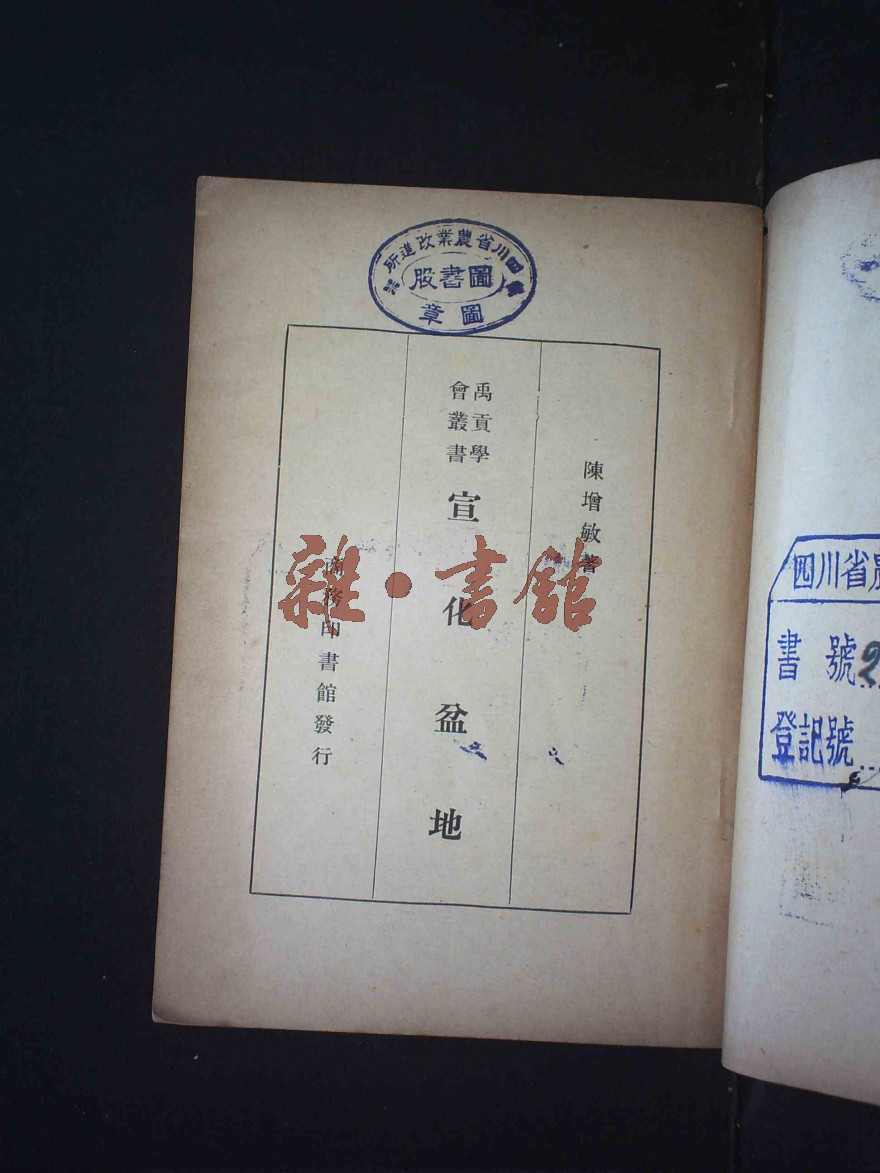 四川省農業改進所
圖書股
圖章
陳增敏著
禹貢學
會叢書
宣化盆地
商務印書館發行
雜·書館
四川省農
書號2
登記號